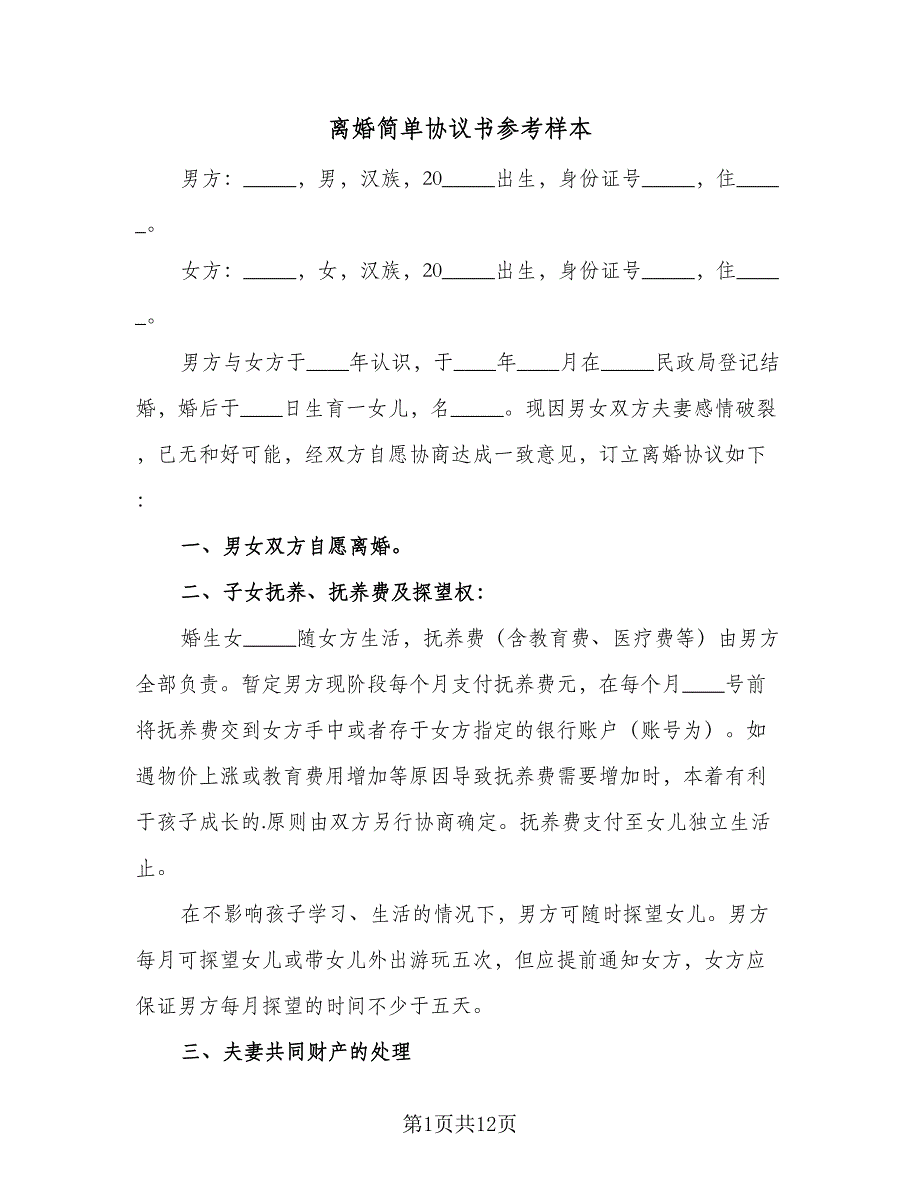 离婚简单协议书参考样本
男方：_____，男，汉族，20_____出生，身份证号_____，住____
_。
女方：_____，女，汉族，20_____出生，身份证号_____，住____
_。
男方与女方于____年认识，于____年____月在_____民政局登记结
婚，婚后于____日生育一女儿，名_____。现因男女双方夫妻感情破裂
，已无和好可能，经双方自愿协商达成一致意见，订立离婚协议如下
：
一、男女双方自愿离婚。
二、子女抚养、抚养费及探望权：
婚生女_____随女方生活，抚养费（含教育费、医疗费等）由男方
全部负责。暂定男方现阶段每个月支付抚养费元，在每个月____号前
将抚养费交到女方手中或者存于女方指定的银行账户（账号为）。如
遇物价上涨或教育费用增加等原因导致抚养费需要增加时，本着有利
于孩子成长的.原则由双方另行协商确定。抚养费支付至女儿独立生活
止。
在不影响孩子学习、生活的情况下，男方可随时探望女儿。男方
每月可探望女儿或带女儿外出游玩五次，但应提前通知女方，女方应
保证男方每月探望的时间不少于五天。
三、夫妻共同财产的处理
第1页共12页